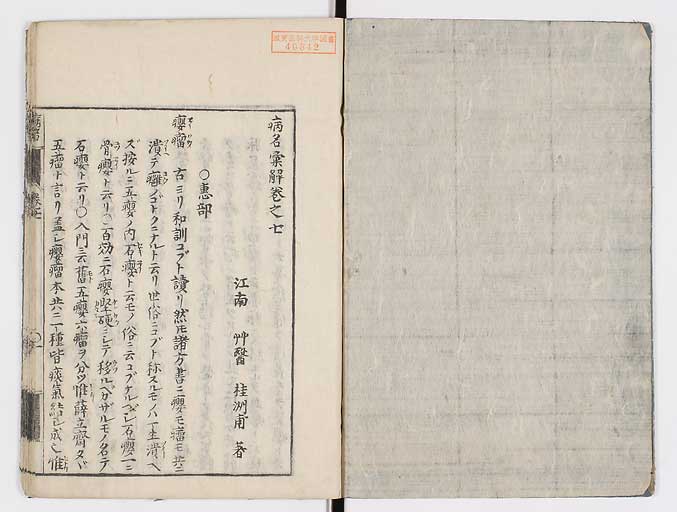 病名彙解卷之七
江南 艸醫 桂洲甫 著
○恵部
癭瘤 古ヨリ和訓コブト讀リ然𪜈諸方書ニ癭モ瘤モ共ニ
潰テ癰ノゴトクニナルト云リ世俗ニコブト称スルモノハ一生潰ヘ
ズ按ルニ五癭ノ内石癭ト云モノ俗ニ云コブナルベシ石癭一ニ
骨癭ト云リ○百効ニ石癭堅硬ニシテ移ルベカザルモノ名テ
石癭ト云リ○入門ニ云舊五癭六瘤ヲ分ツ惟薛立齋タヾ
五瘤ト言リ蓋シ癭瘤本共ニ一種皆痰氣結シ成ル惟
46842